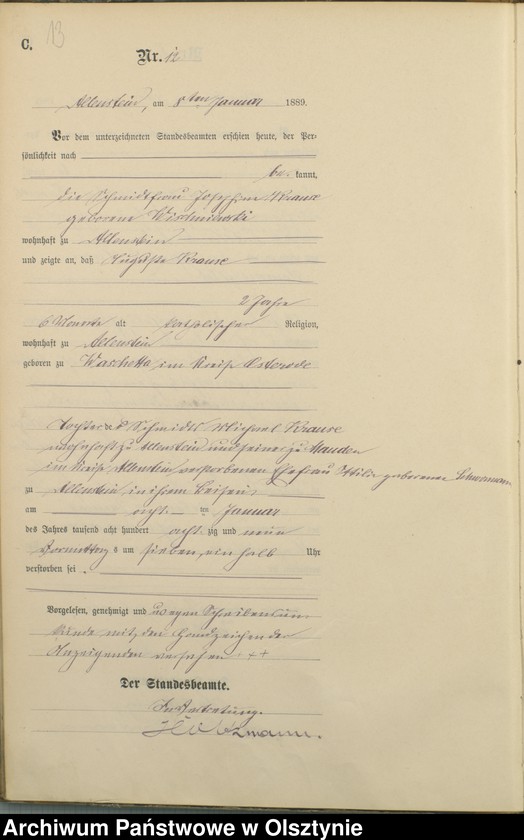 C.
13
Nr. 12
Allenstein, am 8ten Januar 1889.
Vor dem unterzeichneten Standesbeamten erschien heute, der Per-
sönlichkeit nach
be kannt,
die Schmidtfrau Josephine Krause
geborene
wohnhaft zu Allenstein
und zeigte an, daß Auguste Krause
2 Jahre
6 Monate alt katholischer Religion,
wohnhaft zu Allenstein
geboren zu Waschetta im Kreise Osterode
Tochter des Schmidts Michael Krause
wohnhaft zu Allenstein und seiner zu Mauden
im Kreise Allenstein verstorbenen Ehefrau Ottilie geborenen
zu Allenstein in ihrem Beisein
am acht ten Januar
des Jahres tausend acht hundert acht zig und neun
Vormittags um sieben ein halb Uhr
verstorben sei.
Vorgelesen, genehmigt und wegen Schreibensun-
kunde mit den Handzeichen der
Anzeigenden versehen. +++
Der Standesbeamte.
In Vertretung.
Archiwum Państwowe w Olsztynie